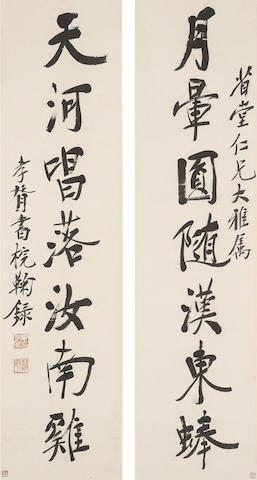 省堂仁兄大雅属
月暈圓随漢東蜯
天河唱落汝南雞
孝胥書梡鞠録